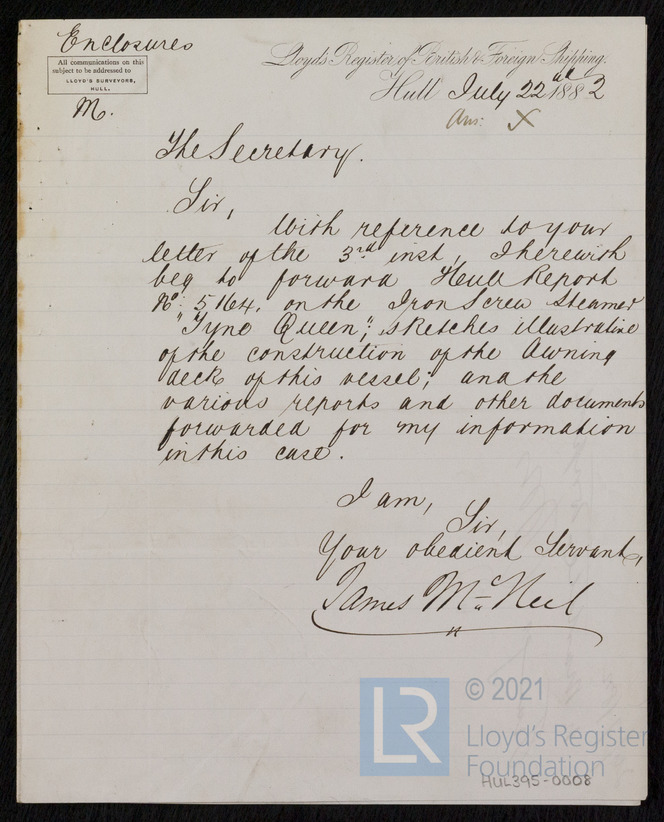 Enclosures
All communications on this
subject to be addressed to
LLOYD'S SURVEYORS,
HULL.
M.
Lloyd's Register of British & Foreign Shipping.
Hull July 22nd 1882
Ans: X
The Secretary.
Sir,
With reference to your
letter of the 3rd inst, I herewith
beg to forward Hull Report
No. 5164. on the Iron Screw Steamer
"Tyne Queen"; sketches illustrative
of the construction of the Awning
deck of this vessel; and the
various reports and other documents
forwarded for my information
in this case.
I am,
Sir,
Your obedient Servant,
James McNeil
LR
© 2021
Lloyd's Register
Foundation
HUL395-0008